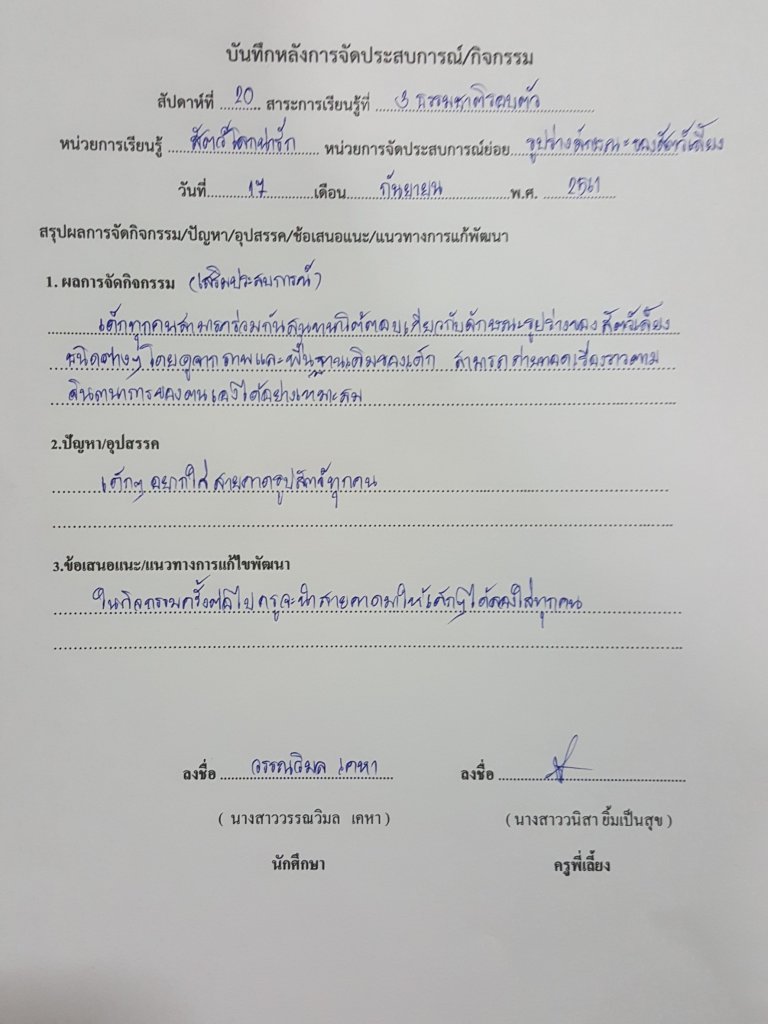 บันทึกหลังการจัดประสบการณ์/กิจกรรม
สัปดาห์ที่ 20 สาระการเรียนรู้ที่ 3 ธรรมชาติรอบตัว
หน่วยการเรียนรู้ สัตว์โลกน่ารัก หน่วยการจัดประสบการณ์ย่อย รูปร่างลักษณะของสัตว์เลี้ยง
วันที่ 17 เดือน กันยายน พ.ศ. 2561
สรุปผลการจัดกิจกรรม/ปัญหา/อุปสรรค/ข้อเสนอแนะ/แนวทางการแก้พัฒนา
1. ผลการจัดกิจกรรม (เสริมประสบการณ์)
เด็กทุกคนสามารถร่วมกันสนทนาโต้ตอบเกี่ยวกับลักษณะรูปร่างของสัตว์เลี้ยง
ชนิดต่างๆ โดยดูจากภาพและพื้นฐานเดิมของเด็ก สามารถถ่ายทอดเรื่องราวตาม
จินตนาการของตนเองได้อย่างเหมาะสม
2.ปัญหา/อุปสรรค
เด็กๆ อยากใส่สายคาดรูปสัตว์ทุกคน
3.ข้อเสนอแนะ/แนวทางการแก้ไขพัฒนา
ในกิจกรรมครั้งต่อไป ครูจะนำสายคาดมาให้เด็กๆ ได้ลองใส่ทุกคน
ลงชื่อ วรรณวิมล เคหา ลงชื่อ
( นางสาววรรณวิมล เคหา ) ( นางสาววนิสา ยิ้มเป็นสุข )
นักศึกษา ครูพี่เลี้ยง